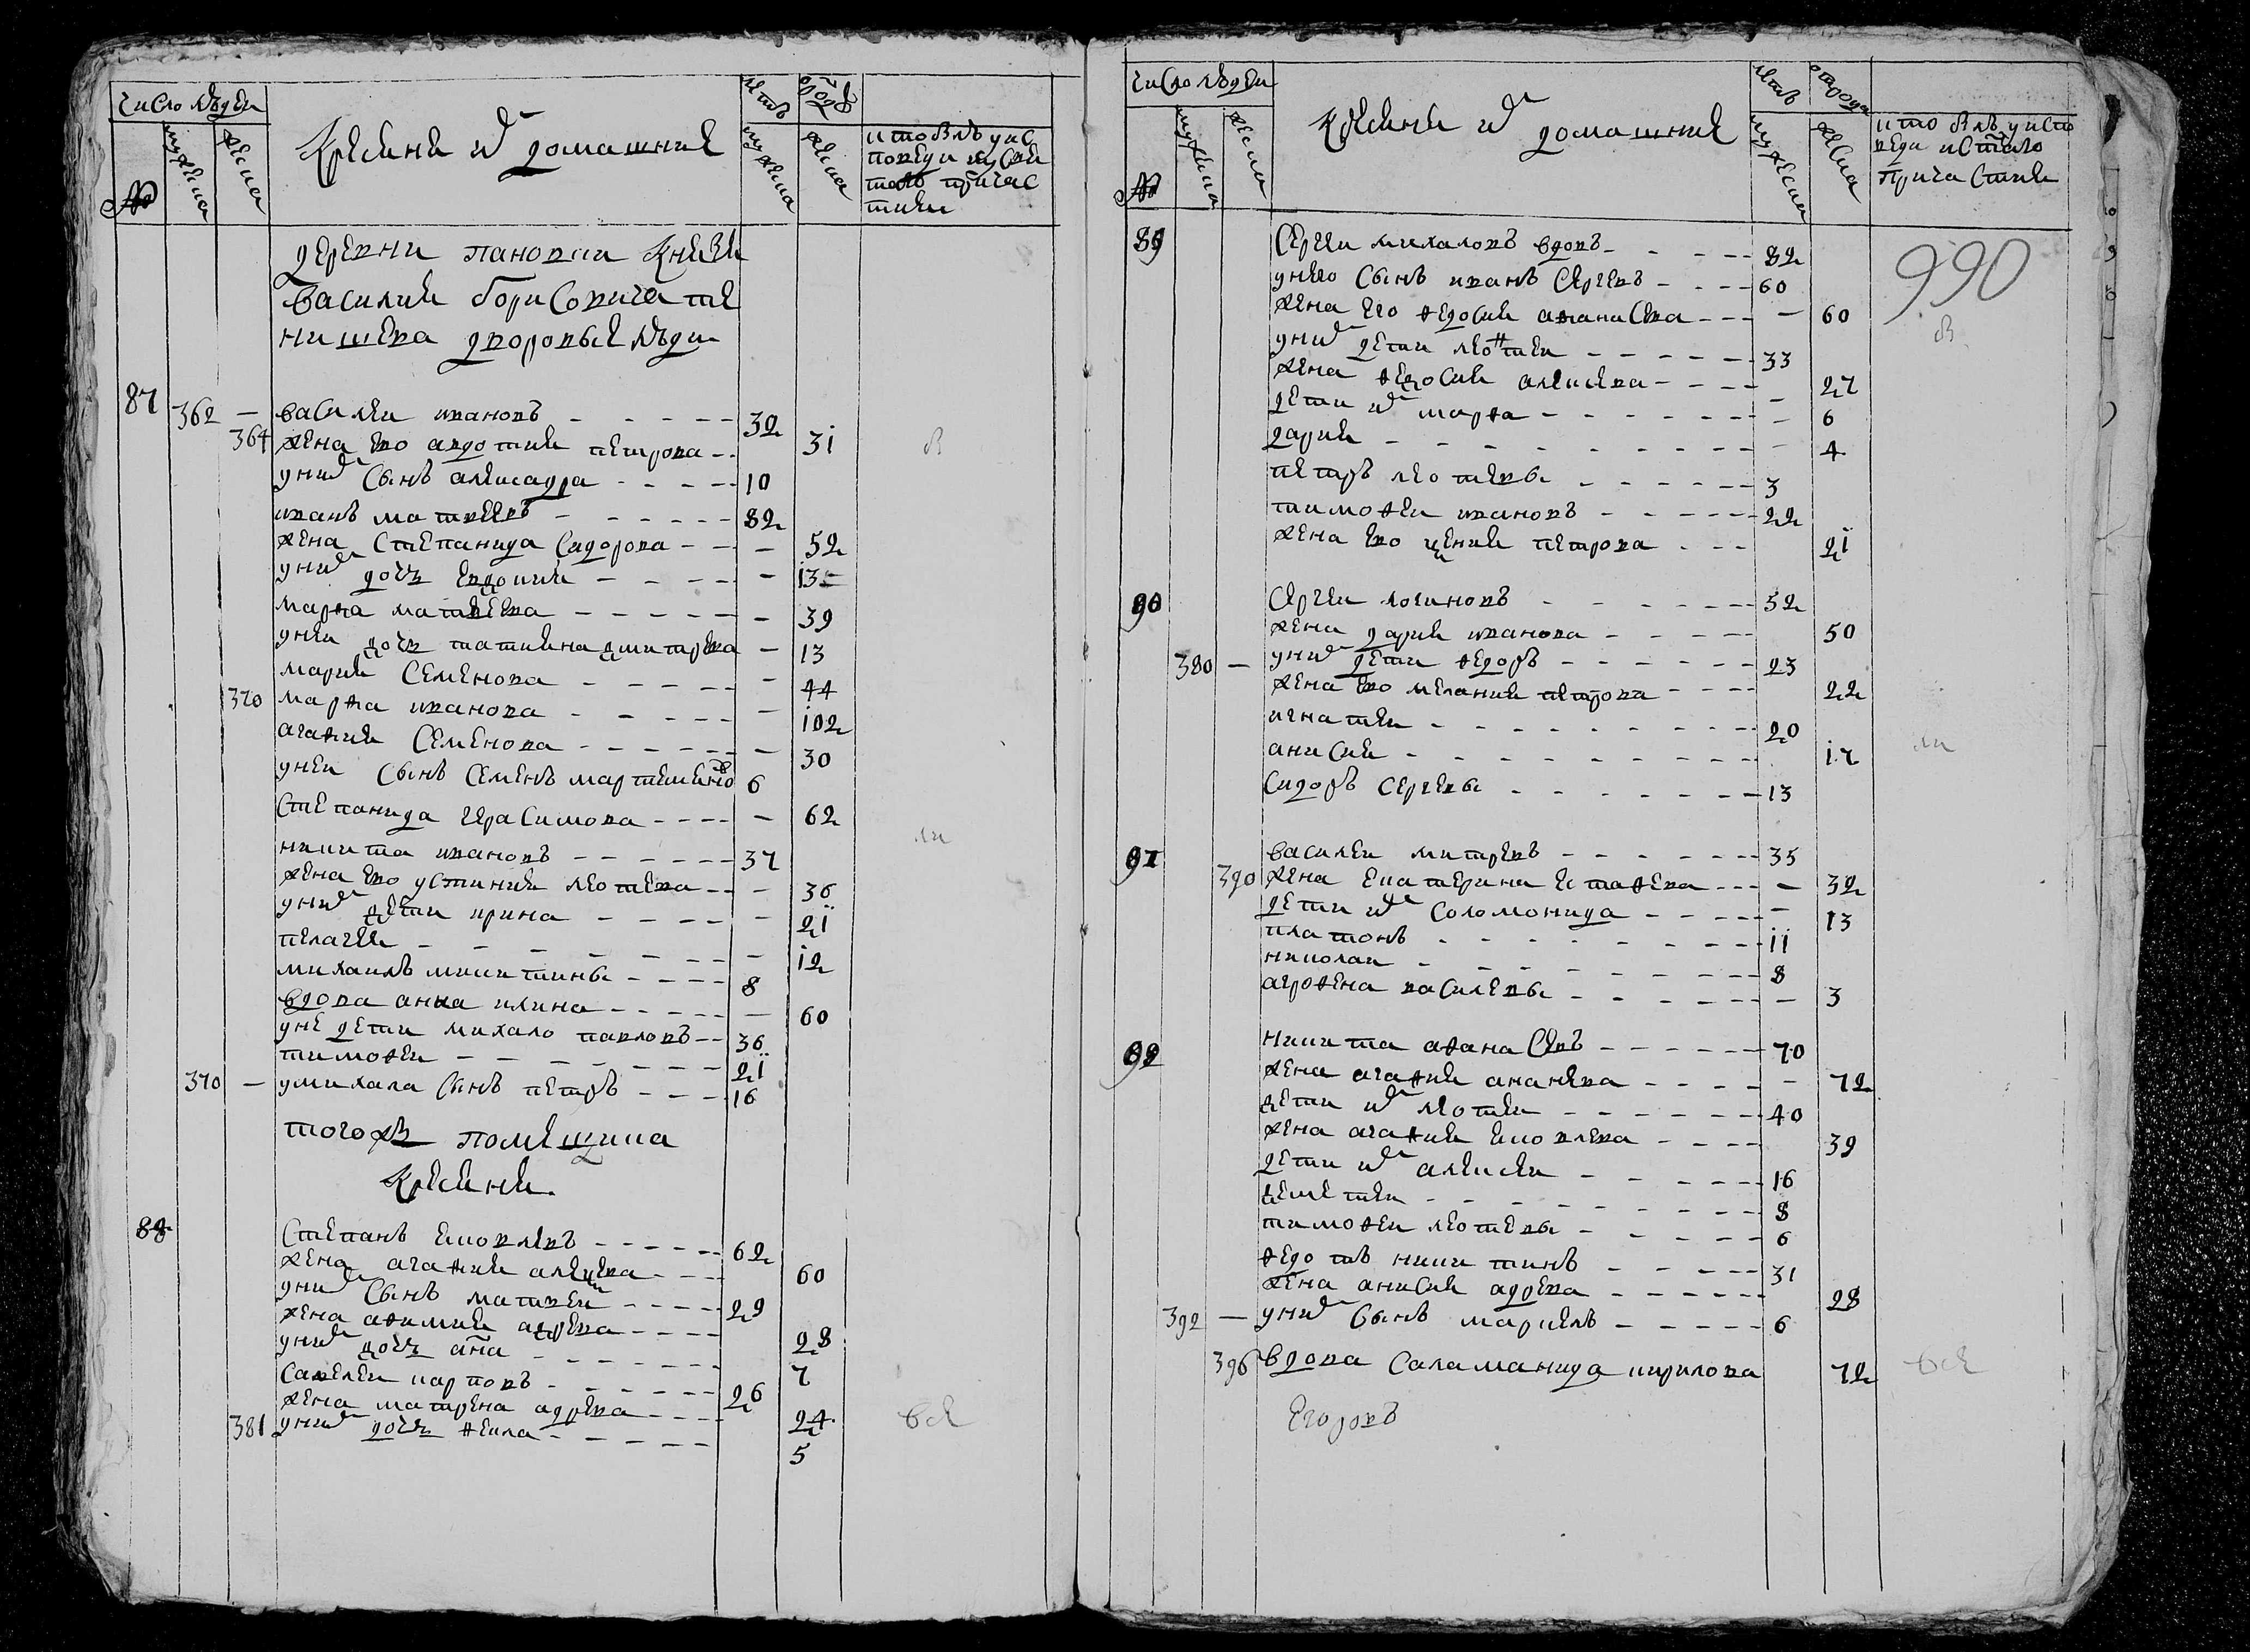 число людеи
лѣтъ
отроду
№
мужеска
женска
Кресяня их домашние
мужеска
женска
кто былъ у ис
поведи и у свя
таго причас
тия
деревни пановки князя
василия борисовича те
нишева дворовые люди
87 362 — василеи ивановъ 32
364 жена ево авдотия петрова 31
у них сынъ алексадра 10
иванъ матвеевъ 82
жена степанида сидорова — 52
у них дочь евдокия — 13
марфа матвеева — 39
у неи дочь татияна дмитрева — 13
мария семенова — 44
370 марфа иванова — 102
агафия семенова — 30
у неи сынъ семенъ мартемяно 6
степанида герасимова — 62
никита ивановъ 37
жена ево устиния леотева — 36
у них дети ирина — 21
пелагея — 12
михаилъ никитины 8
вдова анна илина — 60
у не дети михало павловъ 36
тимофеи 21
370 — у михала сынъ петръ 16
тогожъ помещика
Кресяня
88 степанъ яковлевъ 62
жена агафия алексева 60
у них сынъ матвеи 29
жена афимия адрева 28
у них дочь ана 7
савелеи карповъ 26
жена матрена адрева 24
381 у них дочь фекла 5
в
ли
всѣ
число людеи
лѣтъ
отроду
№
мужеска
женска
кресяня их домашние
мужеска
женска
кто былъ у испо
веди и стаго
причастия
990
89 сергеи михаловъ вдовъ 82
у него сынъ иванъ сергевъ 60
жена его федосия афанасева — 60
у них дети леонтеи 33
жена федосия алексева — 27
дети их марфа — 6
дария — 4
петръ леотевы 3
тимофеи ивановъ 22
жена ево ксения петрова 21
90 сергеи логиновъ 52
жена дария иванова 50
380 — у них дети федоръ 23
жена ево мелания петрова 22
игнатеи 20
анисия 17
сидоръ сергевы 13
91 василеи митревъ 35
390 жена екатерина естафева — 32
дети их соломонида — 13
платонъ 11
николаи 8
агрофена василевы — 3
92 никита афанасевъ 70
жена агафия ананева — 72
дети их леотеи 40
жена агафия яковлева 39
дети их алексеи 16
8
тимофеи леотевы 6
федотъ никитинъ 31
жена анисия адрева 28
392 — у них сынъ маркелъ 6
396 вдова саламанида кирилова 72
Егоровъ
в
ли
всѣ